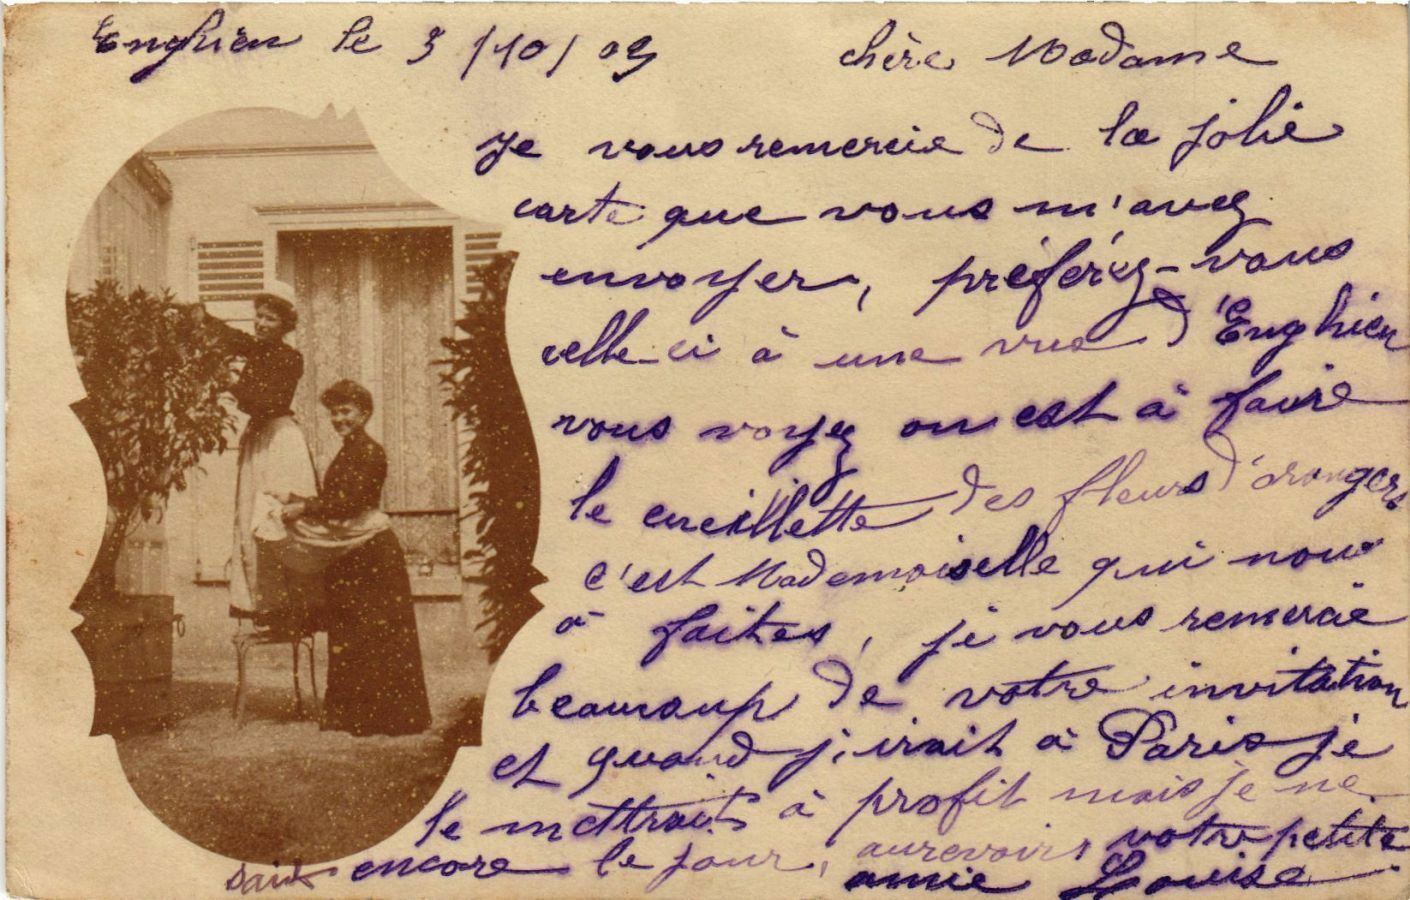 Enghien le 3/10/03
chère Madame
Je vous remercie de la jolie
carte que vous m'avez
envoyer, préférez-vous
celle-ci à une vue d'Enghien
vous voyez on est à faire
le cueillette des fleurs d'orangers
c'est Mademoiselle qui nous
à faites, je vous remercie
beaucoup de votre invitation
et quand j'irait à Paris je
le mettrait à profit mais je ne
sait encore le jour, aurevoir, votre petite
amie Louise